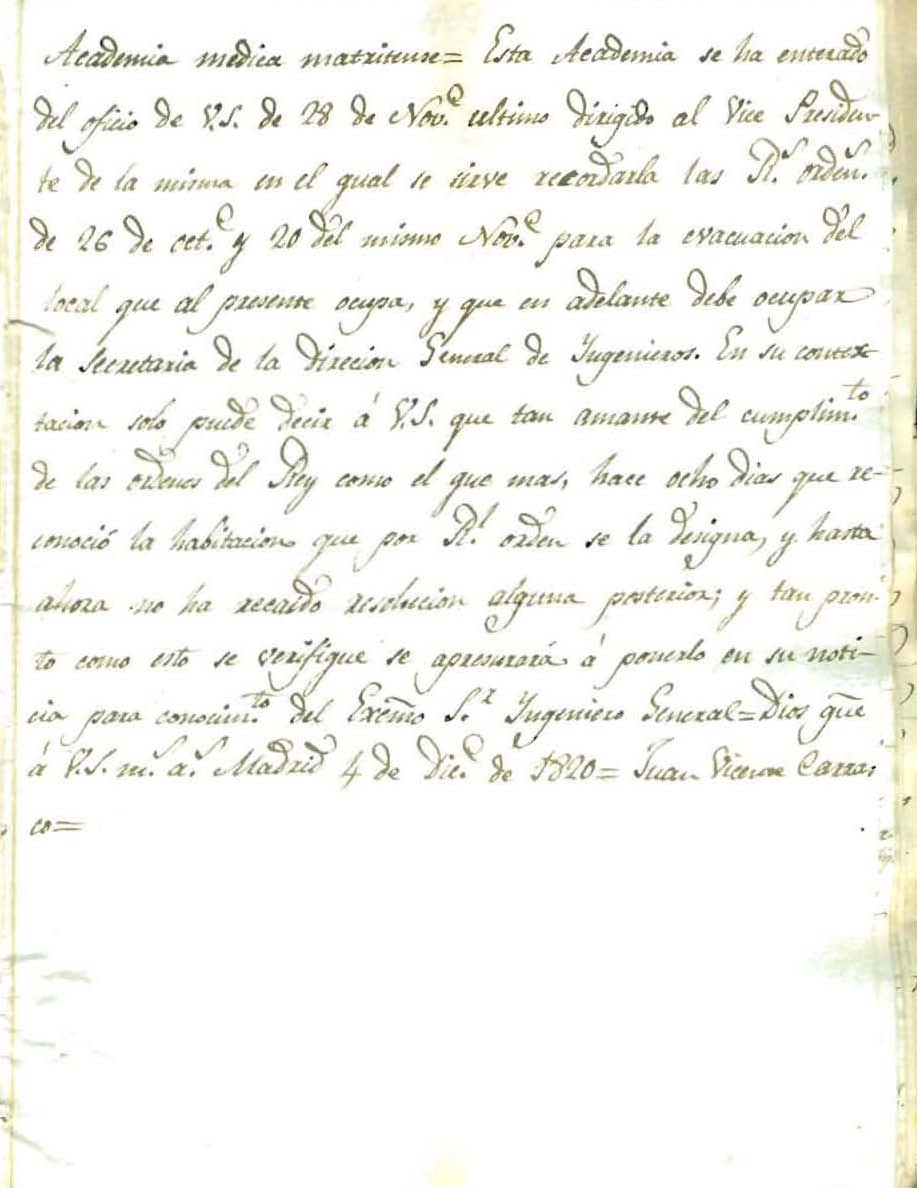 Academia medica matritense= Esta Academia se ha enterado
del oficio de V.S. de 28 de Nov.e ultimo dirigido al Vice Presiden-
te de la misma en el qual se sirve recordarla las R.s orden.s
de 26 de oct.e y 20 del mismo Nov.e para la evacuacion del
local que al presente ocupa, y que en adelante debe ocupar
la Secretaria de la Direcion General de Yngenieros. En su contex-
tacion solo puede decir á V.S. que tan amante del cumplim.to
de las ordenes del Rey como el que mas, hace ocho dias que re-
conoció la habitacion que por R.l orden se la designa, y hasta
ahora no ha recaido resolucion alguna posterior; y tan pron-
to como esto se verifique se apresurará á ponerlo en su noti-
cia para conocim.to del Exc̃mo S.r Yngeniero General=Dios gũe
á V.S. m.s a.s Madrid 4 de Dic.e de 1820= Juan Vicente Carras-
co=